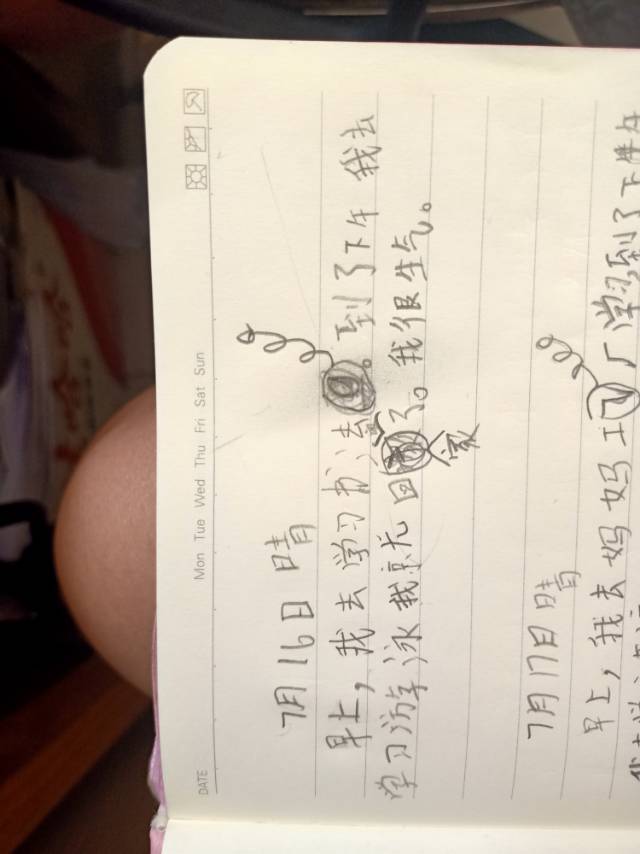 DATE Mon Tue Wed Thu Fri Sat Sun
7月16日 晴
早上，我去学习书法。到了下午 我去
学习游泳 我就尤回家了。我很生气。
7月17日晴
早上，我去妈妈工厂学习到了下